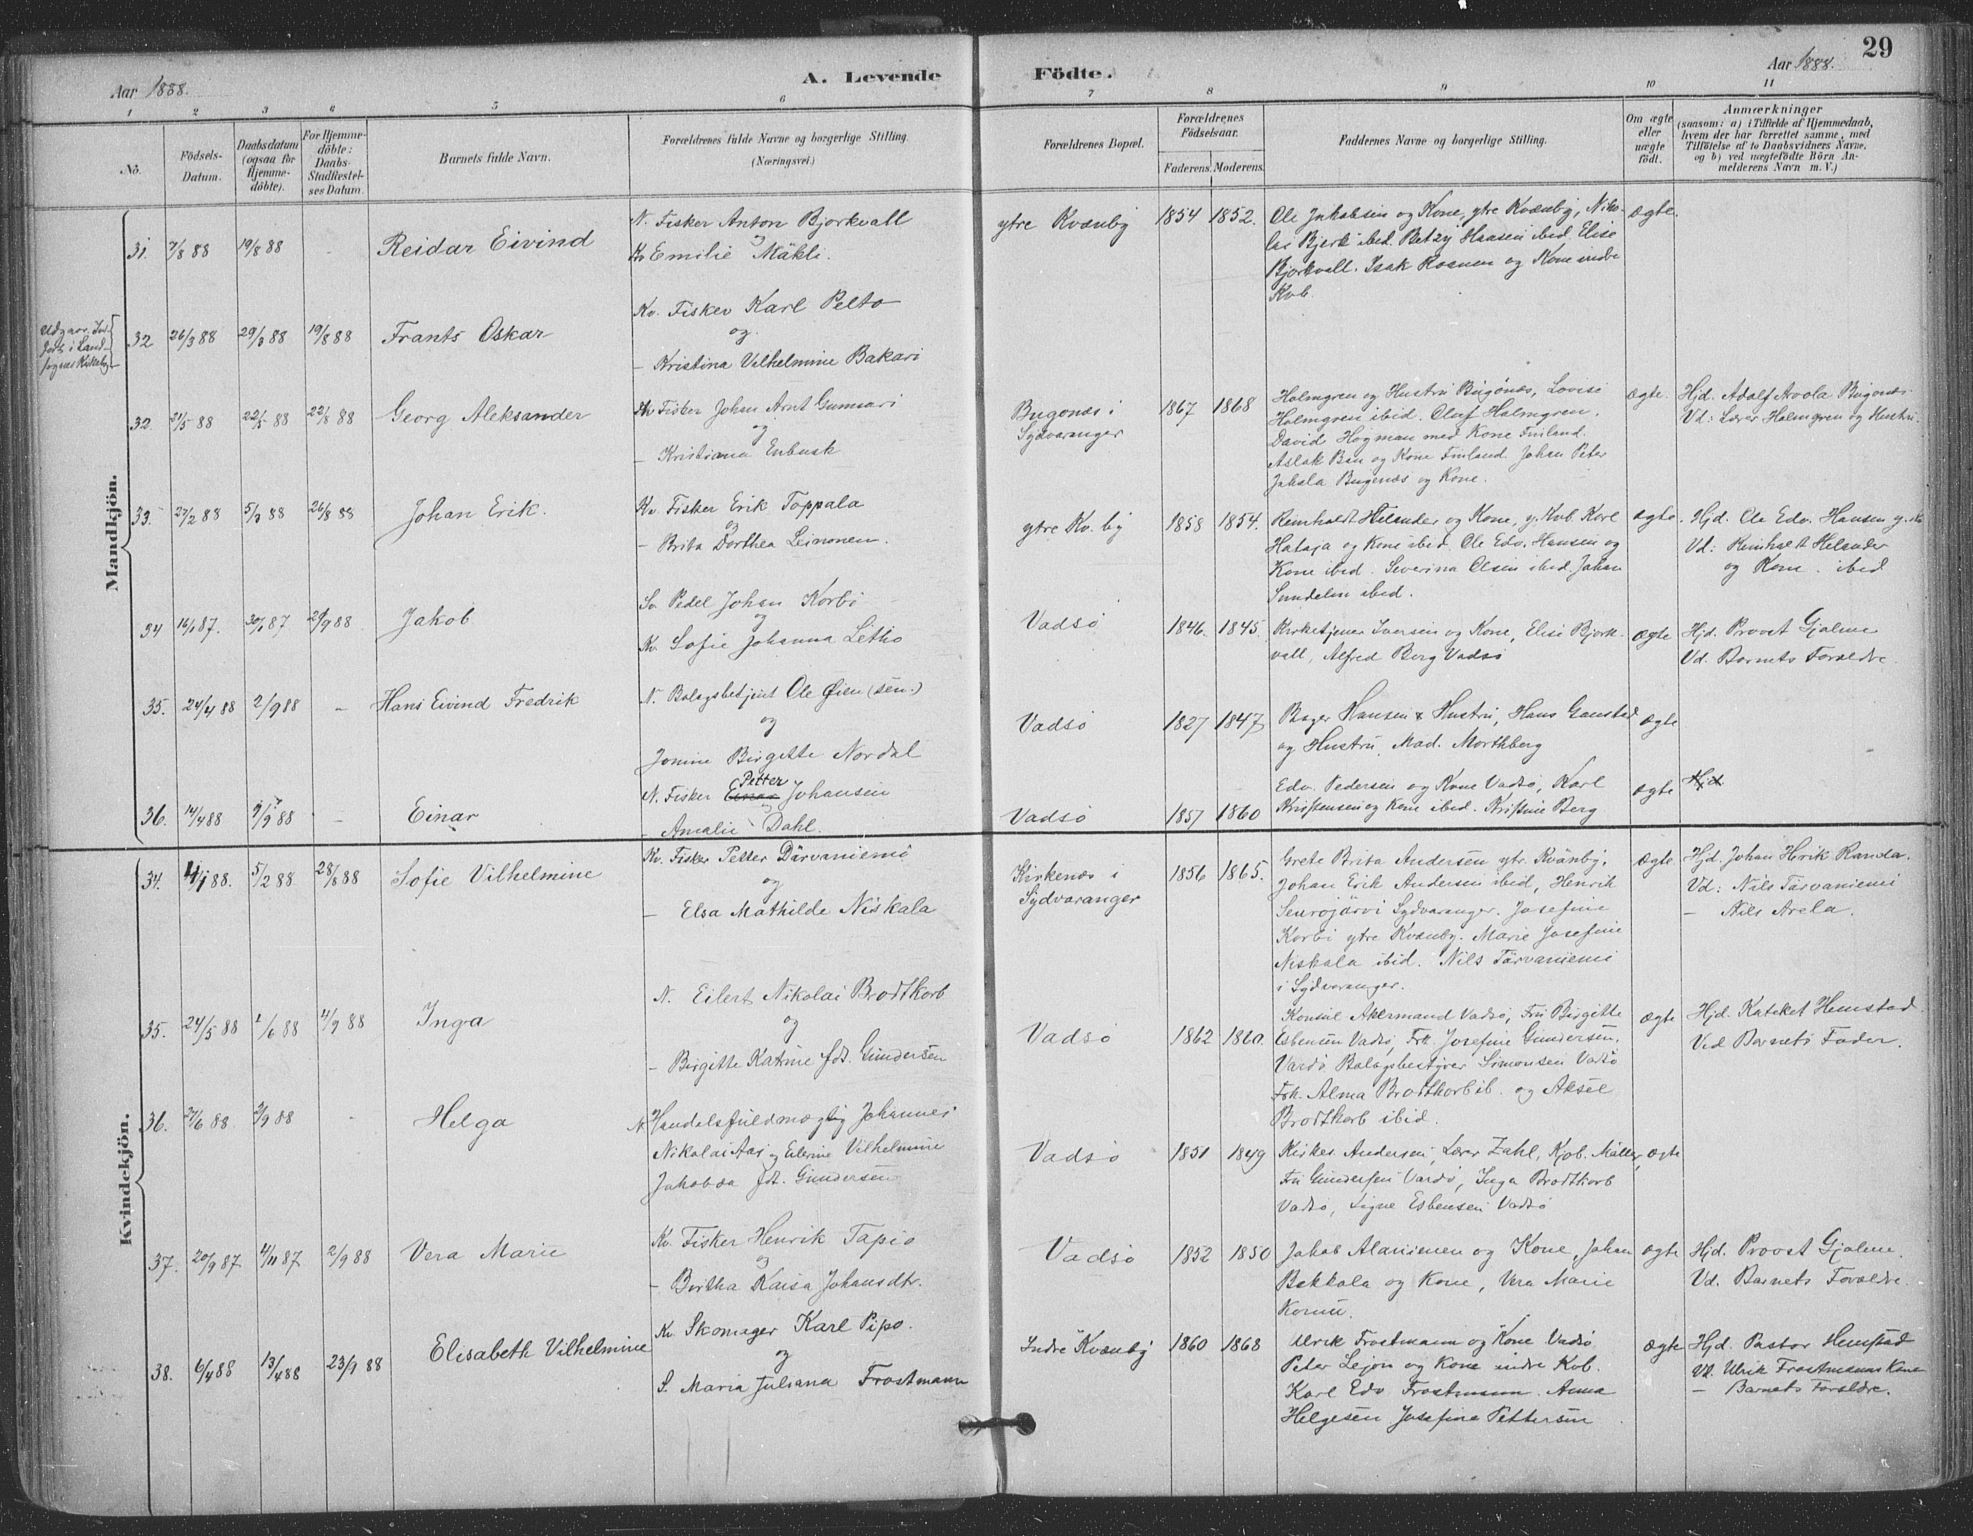 29
Aar 1888.
A. Levende
Födte.
Aar 1888.
1 2 3 4 5 6 7 8 9 10 11
No.
Födsels-
Datum.
Daabsdatum
(ogsaa for
Hjemme-
döbte).
For Hjemme-
döbte:
Daabs-
Stadfæstel-
ses Datum.
Barnets fulde Navn.
Forældrenes fulde Navne og borgerlige Stilling.
(Næringsvei.)
Forældrenes Bopæl.
Forældrenes
Födselsaar.
Faderens. Moderens.
Faddernes Navne og borgerlige Stilling.
Om ægte
eller
uægte
födt.
Anmærkninger
(saasom: a) i Tilfælde af Hjemmedaab,
hvem der har forrettet samme, med
Tilföielse af to Daabsvidners Navne,
og b) ved uægtefödte Börn An-
melderens Navn m. V.)
Mandkjön.
31. 7/8 88 19/8 88 - Reidar Eivind
N. Fisker Anton Bjorkvall
og
Kv Emilie Mäkli.
ytre Kvænby 1854 1852.
Ole Jakobsen og Kone, ytre Kvænby, Niko-
lai Bjerk ibid. Betzy Hansen ibid Elise
Bjorkvall. Isak Rosnen og Kone indre
Kvb.
ægte.
32 26/3 88 29/3 88 19/8 88 Frants Oskar
Kv. Fisker Karl Pelto
og
- Kristina Vilhelmine Bakari
32. 21/5 88 22/5 88 22/8 88 Georg Aleksander
Kv Fisker Johan Arnt Gunnari
og
- Kristiana Enbusk
Bugönæs i
Sydvaranger
1867 1868
Holmgren og Hustru Bugönæs, Lovise
Holmgren ibid. Oluf Holmgren.
David Hogman med Kone Finland.
Aslak Ban og Kone Finland Johan Peter
Jakola Bugenæs og Kone.
ægte.
Hjd. Adolf Avola Bugenæs
Vd: Lærer Holmgren og Hustru.
33. 27/2 88 5/3 88 26/8 88 Johan Erik.
Kv Fisker Erik Toppala
og
- Brita Dorthea Leinonen.
ytre Kv. by 1858 1854.
Reinholdt Helander og Kone, y. Kvb. Karl
Hataja og Kone ibid. Ole Edv. Hansen og
Kone ibid. Severina Olsen ibid. Johan
Sundelin ibid.
ægte.
Hjd. Ole Edv. Hansen
Vd: Reinholdt Helander
og Kone. ibid
34 16/1 87. 30/1 87 2/9 88 Jakob
Sv. Pedel Johan Korbi
og
Kv. Sofie Johanna Litho
Vadsö 1846. 1845.
Kirketjener Iversen og Kone, Elise Bjork-
vall, Alfred Berg Vadsö
ægte
Hjd. Provst Gjølme
Vd. Barnets Forældre.
35. 24/4 88 2/9 88 - Hans Eivind Fredrik
N. Bolagsbetjent Ole Øien (sen.)
og
Jonine Birgitte Nordal
Vadsö 1827 1847
Bager Hansen & Hustru, Hans Ganstad
og Hustru, Mad. Morthberg
ægte
36. 14/4 88 9/9 88 - Einar
N. Fisker Einar Petter Johansen
- Amalie Dahl.
Vadsö 1857 1860
Edv. Pedersen og Kone Vadsö, Karl
Kristensen og Kone ibid. Kristine Berg
ægte
Hjd
Kvindekjön.
34. 4/1 88. 5/2 88 28/8 88 Sofie Vilhelmine
Kv. Fisker Petter Därvaniemi
og
- Elsa Mathilde Niskala
Kirkenæs i
Sydvaranger
1856 1865.
Grete Brita Andersen ytr. Kvänby.
Johan Erik Andersen ibid, Henrik
Seurojärvi Sydvaranger. Josefine
Korbi ytre Kvænby. Marie Josefine
Niskala ibid. Nils Tärvaniemi
i Sydvaranger.
ægte
Hjd. Johan Hrik Randa.
Vd: Nils Tarvaniemi
- Nils Arela.
35. 24/5 88 1/6 88 4/9 88 Inga
N. Eilert Nikolai Brodtkorb
og
- Birgitte Katrine fdt. Gundersen
Vadsö 1862 1860.
Konsul Akermand Vadsö, Fru Birgitte
Esbensen Vadsö, Frk. Josefine Gundersen.
Vardö Bolagsbestyrer Simonsen Vadsö
Frk. Alma Brodtkorb ib. og Aksel
Brodtkorb ibid.
ægte
Hjd. Kateket Hemstad.
Ved Barnets Fader.
36. 27/6 88 9/9 88 - Helga
N Handelsfuldmægtig Johannes
Nikolai Aas og Elerine Vilhelmine
Jakobæa fdt. Gundersen
Vadsö 1851 1849
Kirkes. Andersen, Lærer Zahl, Kjøb. Müller,
Fru Gundersen Vardö, Inga Brodtkorb
Vadsö, Signe Esbensen Vadsö
ægte
37. 20/9 87 4/11 87 2/9 88 Vera Marie
Kv. Fisker Henrik Tapio
og
- Britha Kaisa Johansdtr.
Vadsö 1852 1850
Jakob Alaniemen og Kone, Johan
Bekkala og Kone, Vera Marie
ægte
Hjd. Provst Gjølme.
Vd. Barnets Forældre.
38. 6/4 88 13/4 88 23/9 88 Elisabeth Vilhelmine
Kv Skomager Karl Pipo.
og
S. Maria Juliana Frostmann
Indre Kvænby 1860 1868
Ulrik Frostmann og Kone Vadsö
Peter Lejon og Kone indre Kvb.
Karl Edv Frostmann. Anna
Helgesen Josefine Pettersen
ægte
Hjd. Pastor Hemstad
Vd. Ulrik Frostmanns Kone
- Barnets Forældre.